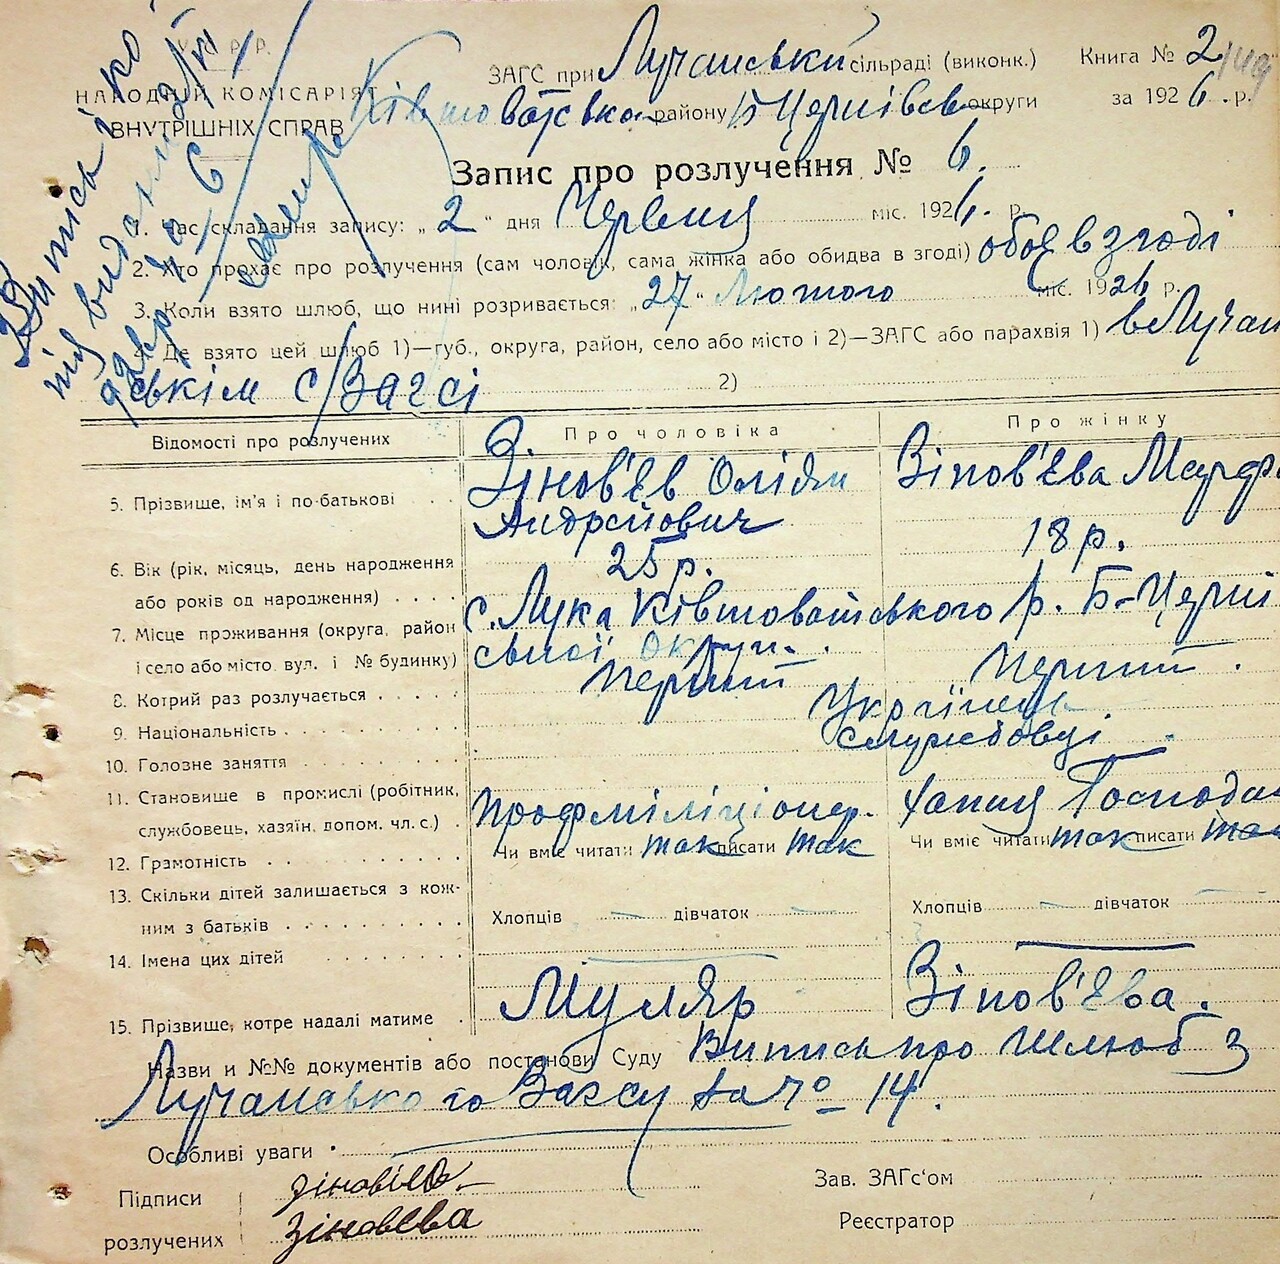 У. С. Р. Р.
НАРОДНІЙ КОМІСАРІЯТ
ВНУТРІШНІХ СПРАВ
Випись і ко
ЗАГС при Лучанській сільраді (виконк.) Книга № 2
Ківшоватської району Б Церківськ округи за 1926. р.
Запис про розлучення № 6.
1. Час складання запису: „2“ дня Червня міс. 1926. р.
2. Хто прохає про розлучення (сам чоловік, сама жінка або обидва в згоді) обоє в згоді
3. Коли взято шлюб, що нині розривається: „27“ Лютого міс. 1926 р.
4. Де взято цей шлюб 1)—губ., округа, район, село або місто і 2)—ЗАГС або парахвія 1) в Лучан
ськім с/Загсі 2)
Відомості про розлучених Про чоловіка Про жінку
5. Прізвище, ім'я і по-батькові Зінов'єв
Андрейович
Зінов'єва Марфа
6. Вік (рік, місяць, день народження
або років од народження) 25 р. 18 р.
7. Місце проживання (округа, район
і село або місто, вул. і № будинку) с. Лука Ківшоватського р. Б-Церків
ської Округи.
8. Котрий раз розлучається Перший Перший.
9. Національність Українець
10. Головне заняття службовці
11. Становище в промислі (робітник,
службовець, хазяїн, допом. чл. с.) Профміліціонер. Хатня Господа
12. Грамотність Чи вміє читати так писати так Чи вміє читати так писати так
13. Скільки дітей залишається з кож-
ним з батьків Хлопців — дівчаток — Хлопців — дівчаток —
14. Імена цих дітей
15. Прізвище, котре надалі матиме Муляр Зінов'єва.
Назви и №№ документів або постанови Суду Випись про шлюб з
Лучанського Загсу за № 14.
Особливі уваги
Підписи
розлучених
Зіновєва
Зав. ЗАГс'ом
Реєстратор